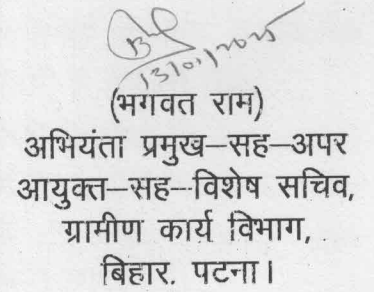 13/01/2025
(भगवत राम)
अभियंता प्रमुख–सह–अपर
आयुक्त–सह–विशेष सचिव,
ग्रामीण कार्य विभाग,
बिहार, पटना।